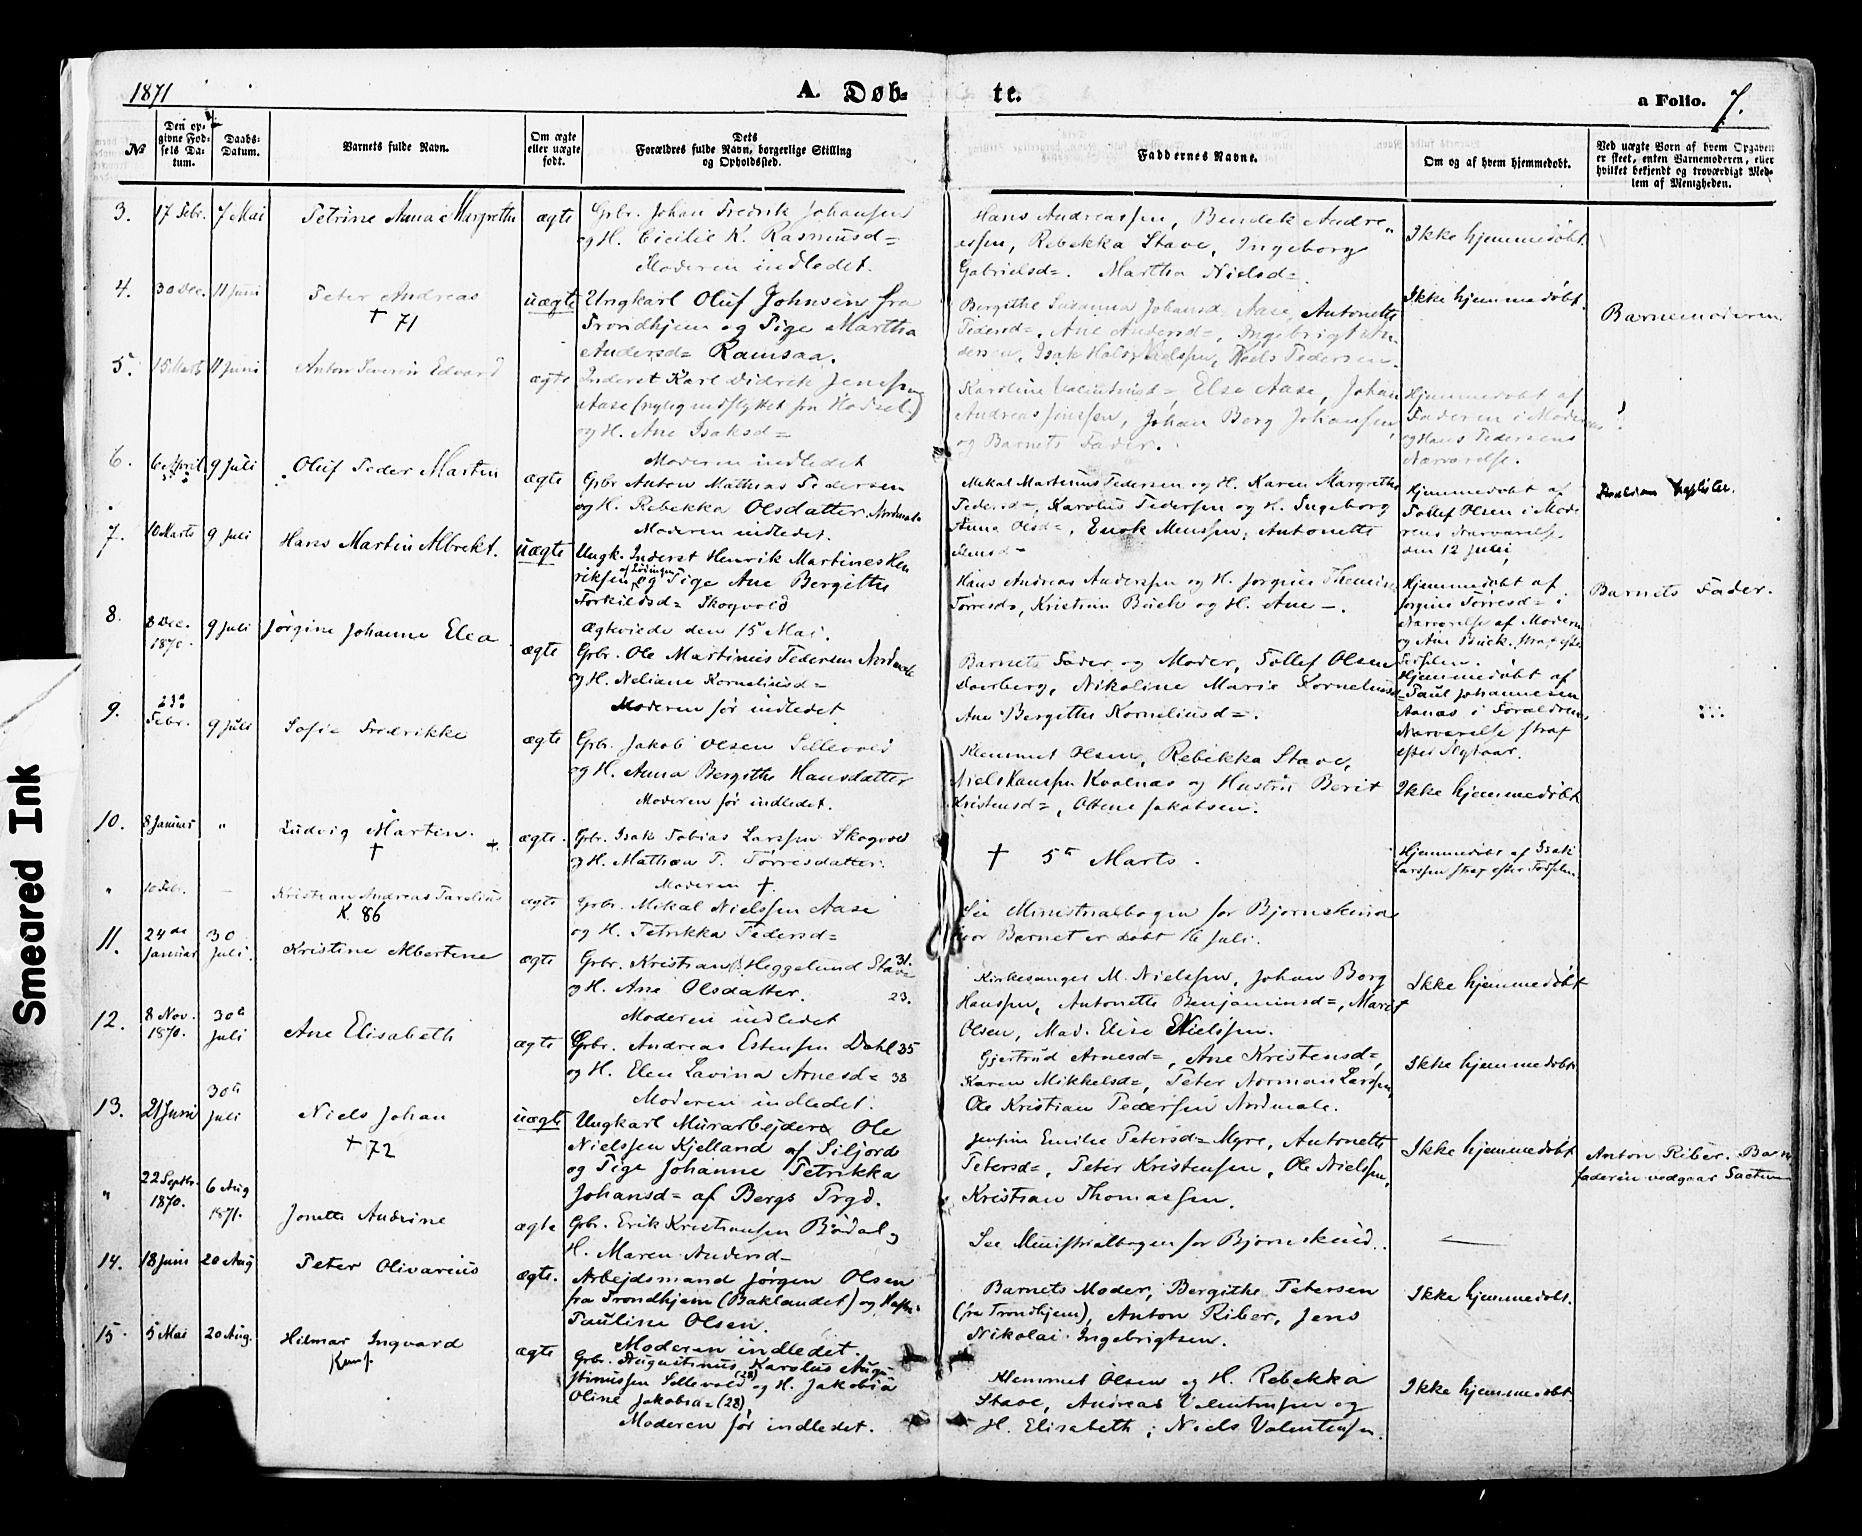 1871
A. Døb-
te.
a Folio. 7.
№
Den op-
givne Fød-
sels Da-
tum.
Daabs-
Datum.
Barnets fulde Navn.
Om ægte
eller uægte
født.
Dets
Forældres fulde Navn, borgerlige Stilling
og Opholdssted.
Faddernes Navne.
Om og af hvem hjemmedøbt.
Ved uægte Børn af hvem Opgaven
er skeet, enten Barnemoderen, eller
hvilket bekjendt og troværdigt Med-
lem af Menigheden.
3. 17 Febr. 7 Mai Petrine Anna Margrethe ægte
Grbr. Johan Fredrik Johansen
og H. Cicilie K. Rasmusd=
Moderen indledet.
Hans Andreassen, Bendik Andre„
assen, Rebekka Stave, Ingeborg
Gabrielsd=. Martha Nielsd=
Ikke hjemmedøbt.
4. 30 Dec. 11 Juni Peter Andreas uægte
† 71
Ungkarl Oluf Johnsen fra
Trondhjem og Pige Martha
Andersd= Ramsaa.
Bergithe Susanna Johansd= Aase, Antonette
Pedersd=, Ane Andersd=, Ingebrigt An
dersen, Isak Nielssen, Niels Pedersen.
Ikke hjemmedøbt.
Barnemoderen
5. 15 Marts 11 Juni Anton Severin Edvard ægte
Inderst Karl Didrik Jenssen
Aase (nylig indflyttet fra Hadsel)
og H. Ane Isaksd=
Moderen indledet
Karoline Valentinsd=, Else Aase, Johan
Andreas Jenssen, Johan Borg Johansen,
og Barnets Fader.
Hjemmedøbt af
Faderen i Moderens
og Hans Pedersens
Nærværelse.
6. 6 April 9 Juli Oluf Peder Martin ægte
Grbr Anton Mathias Pedersen
og H. Rebekka Olsdatter Nordmele
Moderen indledet.
Mekal Martinus Pedersen og H. Karen Margrethe
Pedersd=, Karolus Pedersen og H. Ingeborg
Anna Olsd=, Enok Menssen, Antonette
Hjemmedøbt af
Tollef Olsen i Mode
rens Nærværelse
den 12 Juli
7. 10 Marts 9 Juli Hans Martin Albrekt. uægte
Ungk. Inderst Henrik Martines Hen
riksen af Lødingen og Pige Ane Bergithe
Torkildsd= Skogvold
Ægteviede den 15 Mai.
Hans Andreas Anderssen og H. Jorgine
Torresd=, Kristian Buck og H. Ane —.
Hjemmedøbt af
Jorgine Torresd= i
Nærværelse af Moderen
og Ane Buck strax efter
Fødselen.
Barnets Fader.
8. 8 Dec. 1870. 9 Juli Jørgine Johanne Elea ægte
Grbr. Ole Martinus Pedersen Nordmele
og H. Neliane Korneliusd=
Moderen før indledet
Barnets Fader og Moder, Tollef Olsen
Nikoline Marie Korneliusd=
Ane Bergithe Korneliusd=.
Hjemmedøbt af
Paul Johannesen
Aanæs i Forældrenes
Nærværelse strax
efter
9. 23de Febr. 9 Juli Sofie Fredrikke ægte
Grbr. Jakob Olsen Sellevold
og H. Anna Bergithe Hansdatter
Moderen før indledet.
Klemmet Olsen, Rebekka Stave,
Niels Hanssen Kvalnæs og Hustru Berit
Kristensd=, Ottine Jakobsen.
Ikke hjemmedøbt
10. 8 Januar „ Ludvig Martin. ægte.
†
Grbr. Isak Tobias Larssen Skogvold
og H. Mathea T. Tørresdatter.
Moderen †.
† 5te Marts.
Hjemmedøbt af Isak
Larssen strax efter Fødselen
„ 10 Febr. — Kristian Andreas Parelius ægte
K. 86
Grbr. Mikal Nielssen Aase
og H. Petrikka Pedersd=
See Ministrialbogen for Bjørnskind
hvor Barnet er døbt 16 Juli.
11. 24de Januar 30 Juli Kristine Albertine ægte
Grbr. Kristian B. Heggelund Stave 31.
og H. Ane Olsdatter. 23.
Moderen indledet
Kirkesanger M. Nielssen, Johan Borg
Hanssen, Antonette Benjaminsd=, Maret
Olsen, Mad. Elise Nielssen.
Ikke hjemmedøbt
12. 8 Nov. 1870. 30te Juli Ane Elisabeth ægte
Grbr. Andreas Estensen Dahl 35
og H. Elen Lavina Arnesd= 38
Moderen indledet.
Gjertrud Arnesd=, Ane Kristensd=,
Karen Mikkelsd=, Peter Norman Larssen,
Ole Kristian Pedersen Nordmele.
Ikke hjemmedøbt
13. 21 Juni 30te Juli Niels Johan uægte
† 72
Ungkarl Murarbejder Ole
Nielssen Kjelland af Siljord
og Pige Johanne Petrikka
Johansd= af Bergs Prgd.
Jensine Emilie Petersd= Myre, Antonette
Petersd=, Peter Kristensen, Ole Nielssen,
Kristian Thomassen.
Ikke hjemmedøbt
Anton Riber. Barne
faderen vedgaar
„ 22 Septbr. 1870. 6 Aug 1871. Jonette Andrine ægte
Grbr. Erik Kristiansen Bødal og
H. Maren Andersd=
See Ministrialbogen for Bjørnskind.
14. 18 Juni 20 Aug Peter Olivarius ægte.
Arbejdsmand Jørgen Olsen
fra Trondhjem (Baklandet) og Hustru
Pauline Olsen.
Moderen indledet.
Barnets Moder, Bergithe Petersen
(fra Trondhjem), Anton Riber, Jens
Nikolai Ingebrigtsen.
Ikke hjemmedøbt.
15 5 Mai 20 Aug. Hilmar Ingvard ægte
Konf.
Grbr. Augustinus Karolus Augu-
stinussen Sellevold (28) og H. Jakobia
Oline Jakobsd= (28)
Moderen før indledet.
Klemmet Olsen og H. Rebekka
Stave, Andreas Valentinsen og
H. Elisabeth, Niels Valentinsen.
Ikke hjemmedøbt.
Smeared Ink